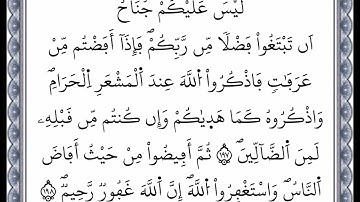 لَيْسَ عَلَيْكُمْ جُنَاحٌ
اَن تَبْتَغُواْ فَضْلًا مِّن رَّبِّكُمْ ۖ فَإِذَآ أَفَضْتُم مِّنْ
عَرَفَٰتٖ فَاذْكُرُواْ اللَّهَ عِندَ اَ۬لْمَشْعَرِ اِ۬لْحَرَامِ ۖ
وَاذْكُرُوهُ كَمَا هَدٜيٰكُمْ وَإِن كُنتُم مِّن قَبْلِهِۦ
لَمِنَ اَ۬لضَّآلِّينَ ۖ ١٩٧ ثُمَّ أَفِيضُواْ مِنْ حَيْثُ أَفَاضَ
اَ۬لنَّاسُ ۖ وَاسْتَغْفِرُواْ اُ۬للَّهَ ۖ إِنَّ اَ۬للَّهَ غَفُورٞ رَّحِيمٞ ۖ ١٩٨